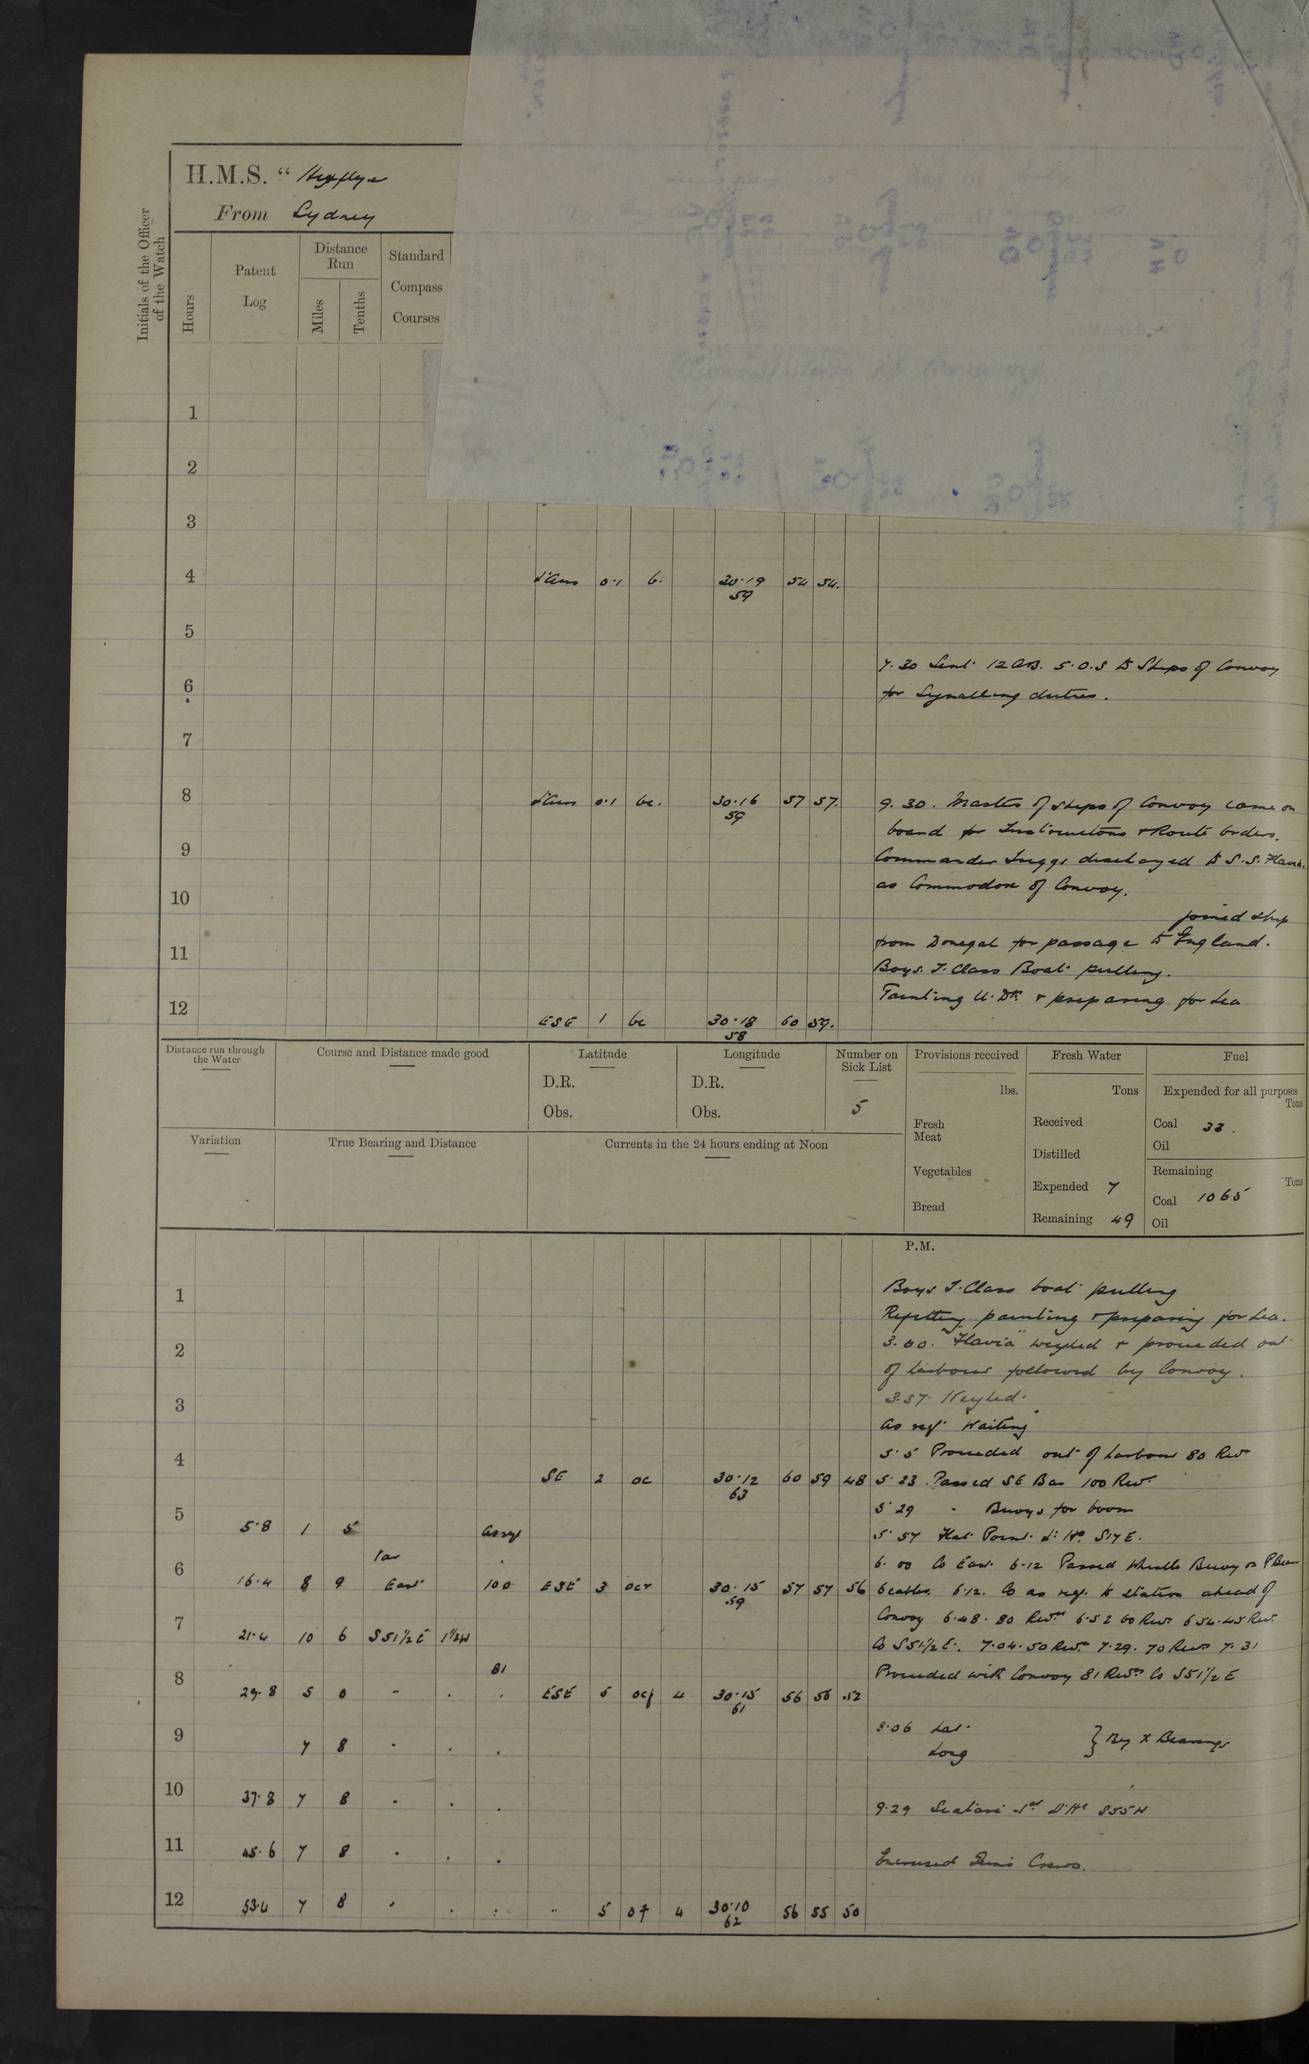 H.M.S. “ Highflyer
From Sydney
Initials of the Officer of the Watch
Hours
Patent Log
Distance Run
Miles
Tenths
Standard Compass Courses
1
2
3
4 d'airs 0.1 b. 30.19 54 54.
59
5
7.30 Sent 12 ABs. S.O.S to Ships of Convoy
6
for Signalling duties.
7
8 d'airs 0.1 bc. 30.16 57 57.
59
9.30. Masters of ships of Convoy came on
board for Instructions & Route Orders.
9
Commander discharged to S.S. Flavia.
as Commodore of Convoy.
10
joined ship
from Donegal for passage to England.
11
Boys 1. Class Boat pulling.
Painting U. Dk. & preparing for Sea
12 ESE 1 bc 30.18 60 59.
58
Distance run through the Water
Course and Distance made good
Latitude
D.R.
Obs.
Longitude
D.R.
Obs.
Number on Sick List
5
Provisions received
lbs.
Fresh Meat
Vegetables
Bread
Fresh Water
Tons
Received
Distilled
Expended 7
Remaining 49
Fuel
Expended for all purposes
Tons
Coal 33.
Oil
Remaining
Tons
Coal 1065
Oil
Variation
True Bearing and Distance
Currents in the 24 hours ending at Noon
P.M.
Boys 1. Class boat pulling
1
Refitting, painting & preparing for Sea.
3.00. "Flavia" weighed & proceeded out
2
of harbour followed by Convoy.
3.57. Weighed.
3
As req. Waiting
5.5 Proceeded out of harbour 80 Revs
4 SE 2 oc 30.12 60 59 48
63
5.23. Passed SE Bar 100 Revs
5.29 " Buoys for boom
5 5.8 1 5 As req
5.57 Flat Point Lt. Ho. S17E.
6.00 Co East. 6.12 Passed Whistle Buoy on P Beam
6 16.4 8 9 Var East 100 ESE 3 ocr 30.15 57 57 56
59
6 cables. 6.12. Co as req. to station ahead of
Convoy 6.48. 80 Revs 6.52 60 Revs 6.54. 45 Revs.
7 21.4 10 6 S51½E 1½W
Co S51½E. 7.04. 50 Revs. 7.29. 70 Revs 7.31
81
Proceeded with Convoy 81 Revs. Co S51½E
8 29.8 5 0 " . . ESE 5 ocq 4 30.15 56 56 52
61
9 7 8 " . .
8.06 Lat.
Long } By X Bearings
10 37.8 7 8 " . .
9.29 Scatari Id Lt. Ho S55W
11 45.6 7 8 " . .
Exercised Guns Crews.
12 53.4 7 8 " . . " 5 4 30.10 56 55 50
62